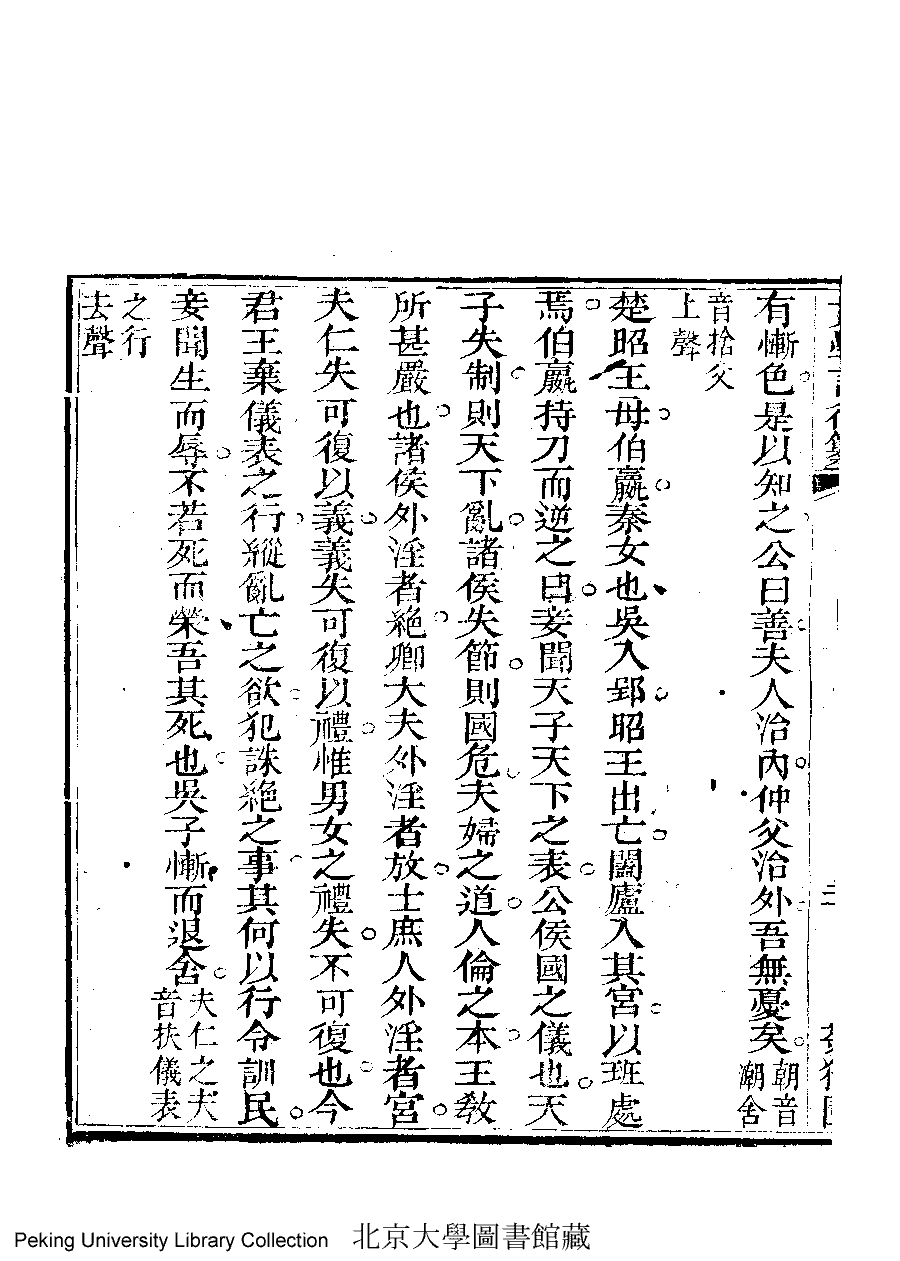 有慚色是以知之公曰善夫人治內仲父治外吾無憂矣朝音潮舍
音捨父上聲
楚昭王母伯嬴秦女也吳入郢昭王出亡闔廬入其宮以班處
焉伯嬴持刀而逆之曰妾聞天子天下之表公侯國之儀也天
子失制則天下亂諸侯失節則國危夫婦之道人倫之本王敎
所甚嚴也諸侯外淫者絕卿大夫外淫者放士庶人外淫者宮
夫仁失可復以義義失可復以禮惟男女之禮失不可復也今
君王棄儀表之行縱亂亡之欲犯誅絕之事其何以行令訓民
妾聞生而辱不若死而榮吾其死也吳子慚而退舍夫仁之夫音扶儀表
之行去聲
Peking University Library Collection 北京大學圖書館藏